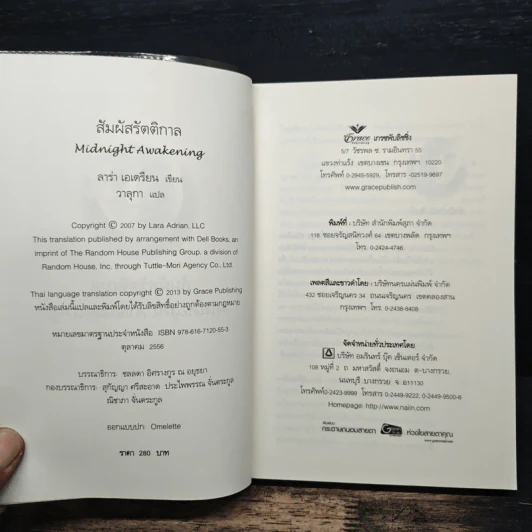 สัมผัสรัตติกาล
Midnight Awakening
ลาร่า เอเดรียน เขียน
วาลุกา แปล
Copyright © 2007 by Lara Adrian, LLC
This translation published by arrangement with Dell Books, an
imprint of The Random House Publishing Group, a division of
Random House, Inc. through Tuttle-Mori Agency Co., Ltd.
Thai language translation copyright © 2013 by Grace Publishing
หนังสือเล่มนี้แปลและพิมพ์โดยได้รับลิขสิทธิ์อย่างถูกต้องตามกฎหมาย
หมายเลขมาตรฐานประจำหนังสือ ISBN 978-616-7120-55-3
ตุลาคม 2556
บรรณาธิการ ชลลดา อิศรางกูร ณ อยุธยา
กองบรรณาธิการ สุกัญญา ศรีสะอาด ประไพพรรณ จั่นตระกูล
ณิชาภา จั่นตระกูล
ออกแบบปก Omelette
ราคา 280 บาท
Grace เกรซพับลิชชิ่ง
5/7 วัชรพล ซ. รามอินทรา 55
แขวงท่าแร้ง เขตบางเขน กรุงเทพฯ 10220
โทรศัพท์ 0-2945-5929, โทรสาร -02519-9697
www.gracepublish.com
พิมพ์ที่ : บริษัท สำนักพิมพ์สุภา จำกัด
116 ซอยจรัญสนิทวงศ์ 64 เขตบางพลัด กรุงเทพฯ
โทร. 0-2424-4746
เพลตสีและขาวดำโดย : บริษัทนครแผ่นพิมพ์ จำกัด
432 ซอยเจริญนคร 34 ถนนเจริญนคร เขตคลองสาน
กรุงเทพฯ โทร. 0-2438-8408
จัดจำหน่ายทั่วประเทศโดย
บริษัท อมรินทร์ บุ๊ค เซ็นเตอร์ จำกัด
108 หมู่ที่ 2 ถ. มหาสวัสดิ์ จงถนอม ต-บางกรวย.
นนทบุรี บางกรวย จ. 11130
โทรศัพท์0-2423-9999 โทรสาร 0-2449-9222, 0-2449-9500-6
Homepage: http://www.naiin.com
กระดาษถนอมสายตา
ห่วงใยสายตาคุณ